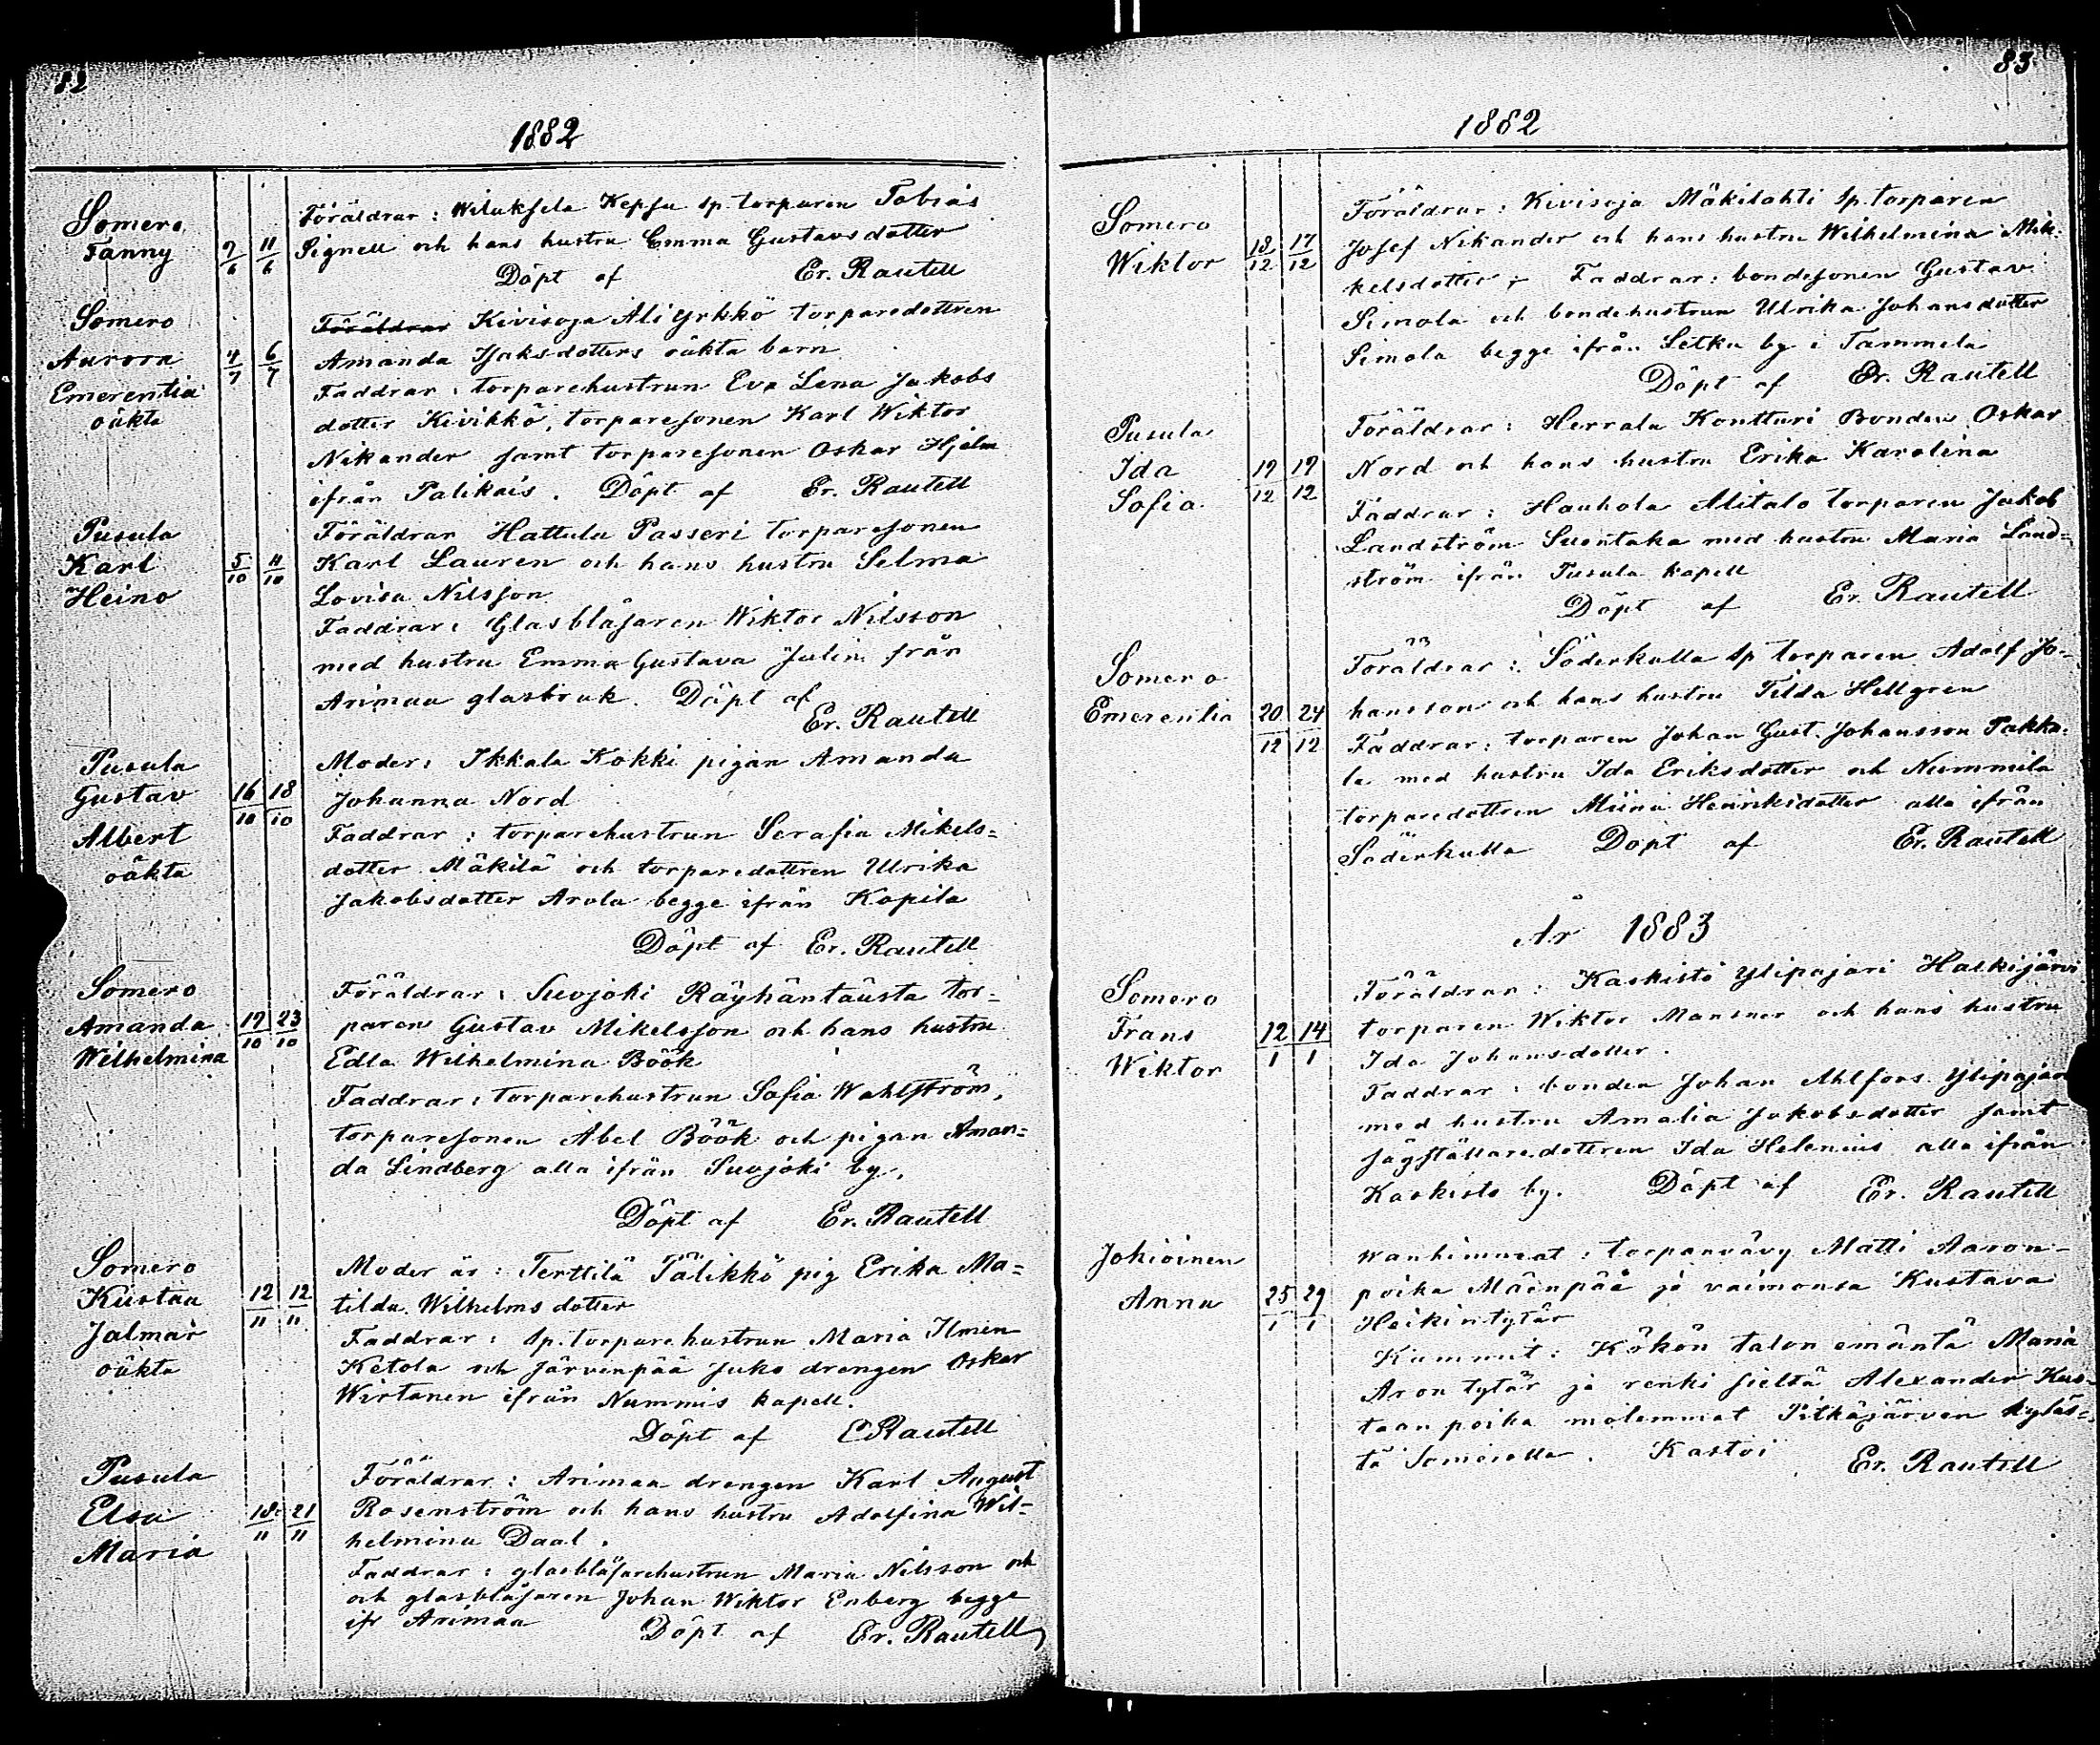 82
1882
Somero
Fanny 7/6 11/6
Föräldrar: Wiluksela Kepsu sp. torparen Tobias
Signell och hans hustru Emma Gustavsdotter
Döpt af Er. Rautell
Somero
Aurora 4/7 6/7
Emerentia
oäkta
Föräldrar Kivisoja Ali Yrkkö torparedottren
Amanda Isaksdotters oäkta barn
Faddrar: torparehustrun Eva Lena Jakobs
dotter Kivikkö, torparesonen Karl Wiktor
Nikander samt torparesonen Oskar Hjelm
ifrån Palikais. Döpt af Er. Rautell
Pusula
Karl 5/10 11/10
Heino
Föräldrar Hattula Passeri torparesonen
Karl Lauren och hans hustru Selma
Lovisa Nilsson
Faddrar: Glasblåsaren Wiktor Nilsson
med hustru Emma Gustava Julin från
Arimaa glasbruk. Döpt af
Er. Rautell
Pusula
Gustav 16/10 18/10
Albert
oäkta
Moder: Ikkala Kokki pigan Amanda
Johanna Nord
Faddrar: torparehustrun Serafia Mikels=
dotter Mäkilä och torparedottren Ulrika
Jakobsdotter Arola begge ifrån Kopila
Döpt af Er. Rautell
Somero
Amanda 19/10 23/10
Wilhelmina
Föräldrar: Suojoki Räyhäntausta tor=
paren Gustav Mikelsson och hans hustru
Edla Wilhelmina Böök
Faddrar: torparehustrun Sofia Wahlström,
torparesonen Abel Böök och pigan Aman=
da Lindberg alla ifrån Suojoki by.
Döpt af Er. Rautell
Somero
Kustaa 12/11 12/11
Jalmar
oäkta
Moder är: Terttilä Tälikkö pig Erika Ma=
tilda Wilhelmsdotter
Faddrar: sp. torparehustrun Maria Ilmen
Ketola och Järvenpää Juko drengen Oskar
Wirtanen ifrån Nummis kapell.
Döpt af E Rautell
Pusula
Elsa 18/11 21/11
Maria
Föräldrar: Arimaa drengen Karl August
Rosenström och hans hustru Adolfina Wil=
helmina Daal.
Faddrar: glasblåsarehustrun Maria Nilsson och
och glasblåsaren Johan Wiktor Enberg begge
ifr Arimaa Döpt af Er. Rautell
83
1882
Somero
Wiktor 18/12 17/12
Föräldrar: Kivisoja Mäkilahti sp. torparen
Josef Nikander och hans hustru Wilhelmina Mik-
kelsdotter; Faddrar: bondesonen Gustav
Simola och bondehustrun Ulrika Johansdotter
Simola begge ifrån Letku by i Tammela
Döpt af Er. Rautell
Pusula
Ida 19/12 19/12
Sofia
Föräldrar: Herrala Kontturi Bonden Oskar
Nord och hans hustru Erika Karolina
Faddrar: Hauhola Alitalo torparen Jakob
Landström Suontaka med hustru Maria Land=
ström ifrån Pusula kapell
Döpt af Er. Rautell
Somero
Emerentia 20/12 24/12
Föräldrar: Söderkulla sp torparen Adolf Jo-
hansson och hans hustru Tilda Hellgren
Faddrar: torparen Johan Gust. Johansson Pakka-
la med hustru Ida Eriksdotter och Nummila
torparedottren Miina Henriksdotter alla ifrån
Söderkulla Döpt af Er. Rautell
År 1883
Somero
Frans 12/1 14/1
Wiktor
Föräldrar: Kaskisto Ylipajari Halkijärvi
torparen Wiktor Mansner och hans hustru
Ida Johansdotter.
Faddrar: bonden Johan Ahlfors Ylipajari
med hustru Amalia Jakobsdotter samt
sågställaredottren Ida Helenius alla ifrån
Kaskisto by. Döpt af Er. Rautell
Jokioinen
Anna 25/1 29/1
Wanhimmat: torpanvävy Matti Aaron-
poika Mäenpää ja vaimonsa Kustava
Heikintytär
Kummit: Kökön talon emäntä Maria
Aron tytär ja renki sieltä Alexander Kus-
taan poika molemmat Pitkäjärven kyläs=
tä Somerolla. Kastoi Er. Rautell